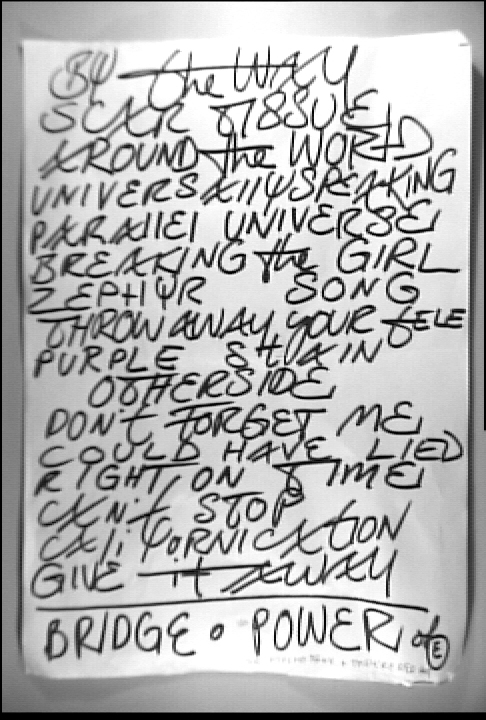 BY the WAY
SCAR TISSUE
AROUND the WORLD
UNIVERSAllY SPEAKING
PARAllEl UNIVERSE
BREAKING the GIRL
ZEPHYR SONG
THROW AWAY YOUR TELE
PURPLE STAIN
OTHERSIDE
DON't FORGET ME
COULD HAVE LIED
RIGHT ON TIME
CAN't STOP
CAliFORNICATION
GIVE it AWAY
BRIDGE • POWER of E